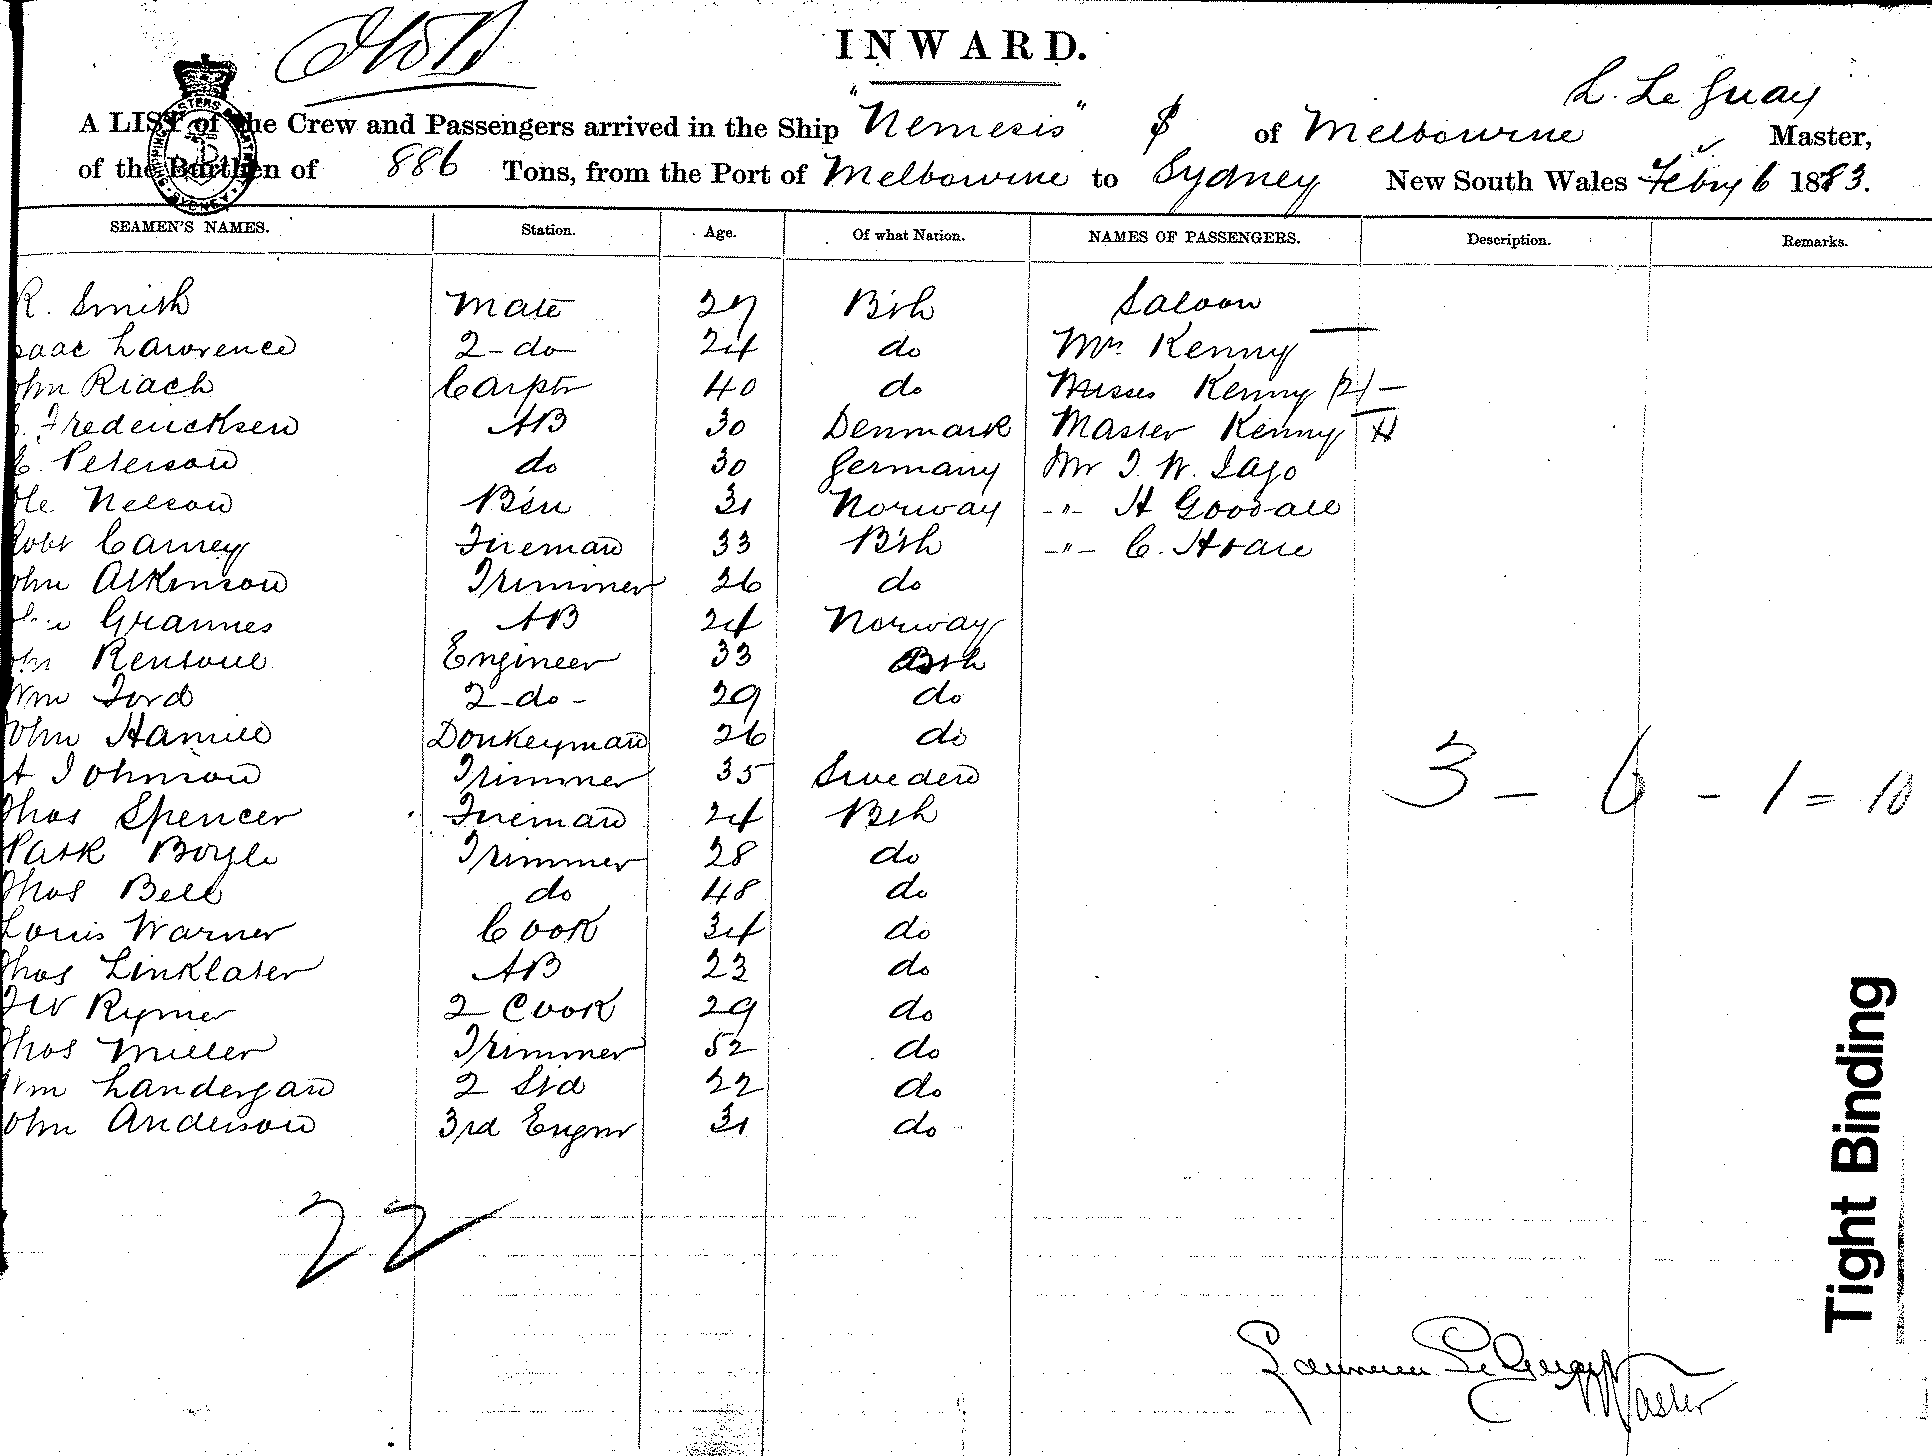 INWARD.
L. Le Guay
A LIST of the Crew and Passengers arrived in the Ship "Nemesis" of Melbourne Master,
of the Burthen of 886 Tons, from the Port of Melbourne to Sydney New South Wales Febry 6 1883.
SEAMEN'S NAMES. Station. Age. Of what Nation. NAMES OF PASSENGERS. Description. Remarks.
R. Smith Mate 27 Bsh Saloon
saac Lawrence 2-do- 24 do Mrs Kenny
ohn Riach Carptr 40 do Misses Kenny (2) -
Fredericksen AB 30 Denmark Master Kenny
E. Peterson do 30 Germany Mr J. W. Iago
Ole Nelson B'sn 31 Norway -"- H Goodall
Robt Carney Fireman 33 Bsh -"- C. Hoare
ohn Atkinson Trimmer 26 do
Grannes AB 24 Norway
ohn Rentoul Engineer 33 Bsh
Wm Ford 2-do- 29 do
John Hamill Donkeyman 26 do
A Johnson Trimmer 35 Sweden
3 - 6 - 1 = 10
Thos Spencer Fireman 24 Bsh
Patk Boyle Trimmer 28 do
Thos Bell do 48 do
Louis Warner Cook 34 do
Thos Linklater AB 23 do
Rymer 2 Cook 29 do
Thos Miller Trimmer 52 do
Wm Landergan 2 Std 22 do
John Anderson 3rd Engnr 31 do
22
Tight Binding
Laurence Le Guay
Master